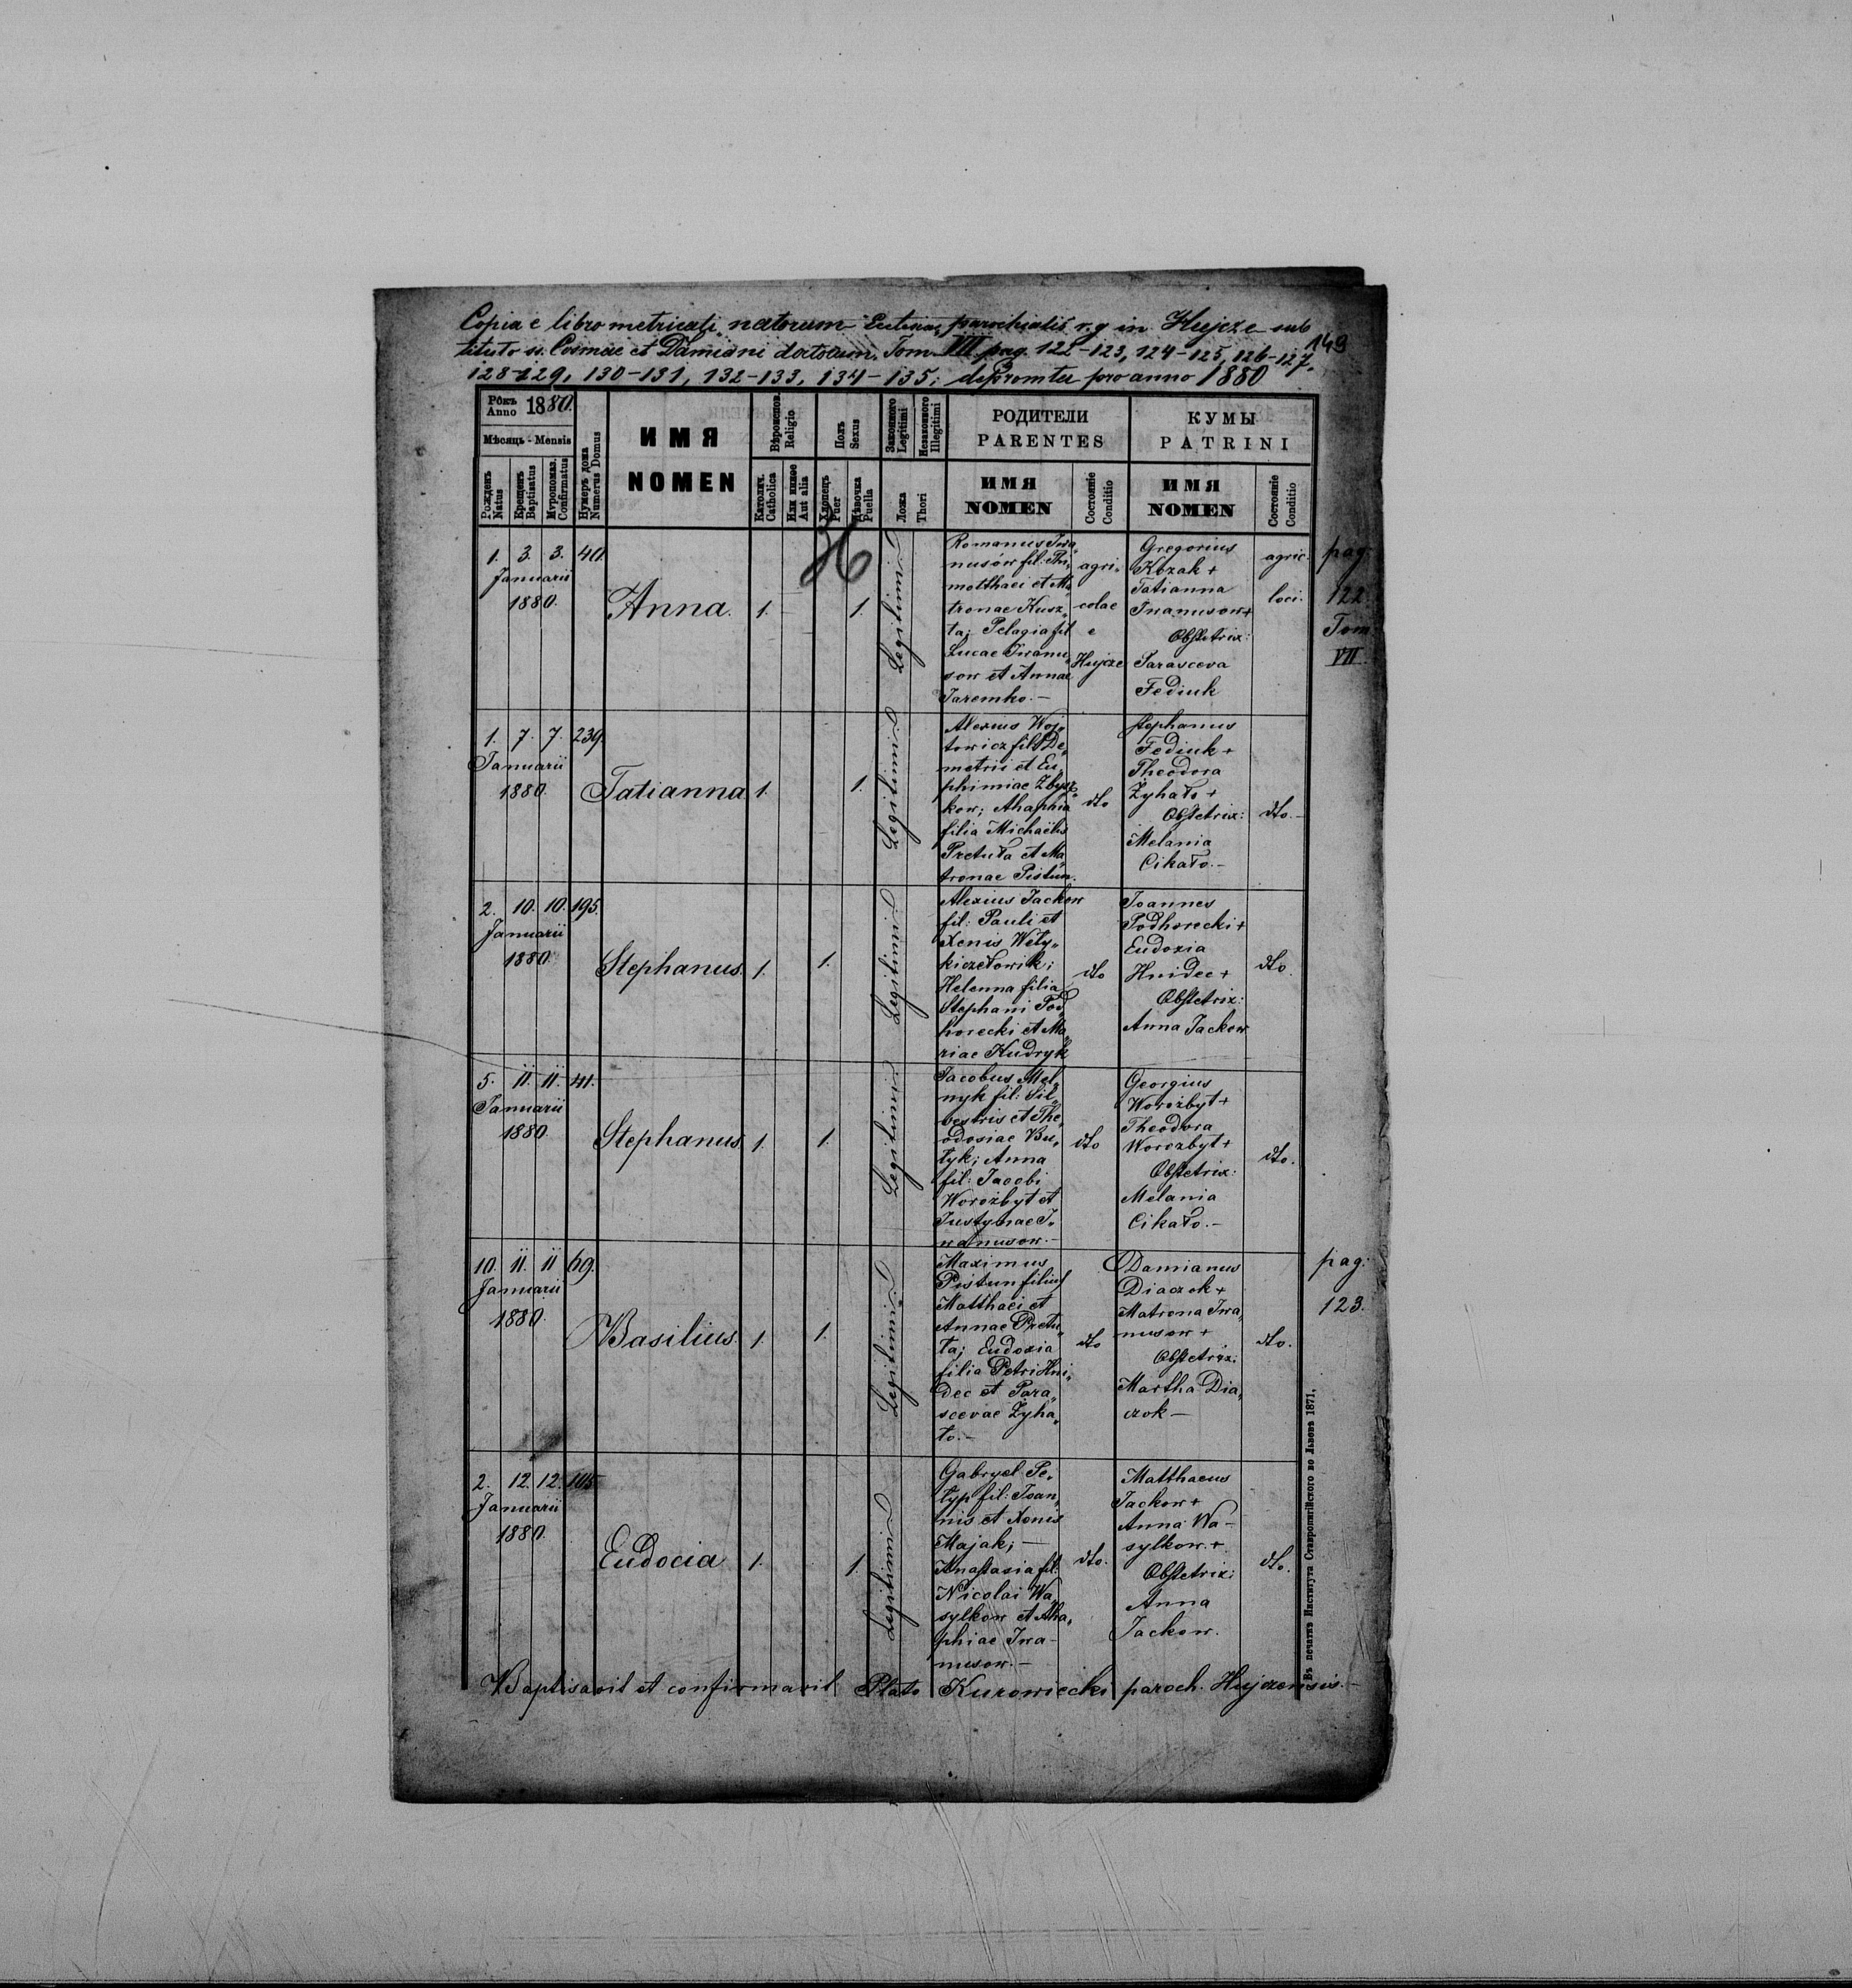 Copia e libro metricali natorum Ecclesiae parochialis r. g. in Hujcze sub
149
titulo ss. Cosmae et Damiani datorum, Tom VII pag. 122-123, 124-125, 126-127.
128-129, 130-131, 132-133, 134-135; depromta pro anno 1880
Рôкъ Anno 1880.
Мѣсяць - Mensis
Рожденъ Natus
Крещенъ Baptisatus
Муропомаз. Confirmatus
Нумеръ дома Numerus Domus
ИМЯ
NOMEN
Вѣроиспов. Religio
Католич. Catholica
Или инное Aut alia
Полъ Sexus
Хлопець Puer
Дѣвочка Puella
Законного Legitimi
Незаконного Illegitimi
Ложа Thori
РОДИТЕЛИ
PARENTES
ИМЯ
NOMEN
Состоянiе Conditio
КУМЫ
PATRINI
ИМЯ
NOMEN
Состоянiе Conditio
1. 3. 3. 40.
Januarii
1880.
Anna. 1. 1.
Legitimi
Romanus Iwa„
nusów fil: Thi„
motthaei et Ma„
tronae Kusz„
ta; Pelagia fil
Lucae Iwanu„
sow et Annae
Jaremko.-
agri„
colae
e
Hujcze
Gregorius
Kozak +
Tatianna
Iwanusow +
Obstetrix:
Parasceva
Fediuk
agric.
loci.
pag.
122.
Tom
VII.
1. 7. 7. 239.
Januarii
1880.
Tatianna 1. 1.
Legitimi
Alexius Woj„
towicz fil: De„
metrii et Eu„
phimiae Zbysz„
kow; Ahaphia
filia Michaëlis
Pretuła et Ma„
tronae Pistun.
dto
Stephanus
Fediuk +
Theodora
Zyhało +
Obstetrix:
Melania
Cikało.-
dto.-
2. 10. 10. 195.
Januarii
1880.
Stephanus. 1. 1.
Legitimi
Alexius Jackow
fil: Pauli et
Xenis Wely„
kiczełowik;
Helenna filia
Stephani Pod„
horecki et Ma„
riae Kudryk
dto
Joannes
Podhorecki +
Eudoxia
Hnidec +
Obstetrix:
Anna Jackow
dto.
5. 11. 11. 41.
Januarii
1880.
Stephanus. 1. 1.
Legitimi
Jacobus Mel„
nyk fil: Sil„
vestris et The„
odosiae Bu„
tyk; Anna
fil: Jacobi
Worożbyt et
Justynae I„
wanusow.-
dto
Georgius
Worożbyt +
Theodora
Worozbyt +
Obstetrix:
Melania
Cikało.-
dto.
10. 11. 11 69.
Januarii
1880.
Basilius. 1. 1.
Legitimi
Maximus
Pistun filius
Matthaei et
Annae Pretu„
ła; Eudoxia
filia Petri Hni„
dec et Para„
scevae Zyha„
ło.-
dto
Damianus
Diaczok +
Matrona Iwa„
nusow +
Obstetrix:
Martha Dia„
czok -
dto.
pag:
123.
2. 12. 12. 105
Januarii
1880.
Eudocia 1. 1.
Legitimi
Gabryel Pe„
typ fil: Joan„
nis et Xenis
Majak; -
Anastasia fil:
Nicolai Wa„
sylkow et Aha„
phiae Iwa-
nusow.-
dto.
Matthaeus
Jackow +
Anna Wa-
sylkow. +
Obstetrix:
Anna
Jackow.
dto.
Baptisavit et confirmavit Plato Kurowiecki paroch. Hujczensis.-
Въ печатнѣ Института Ставропигiйского во Львовѣ 1871.